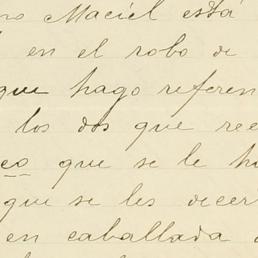 Maciel está
en el robo de
que hago referen
los dos que
que se le
que se les
en caballada